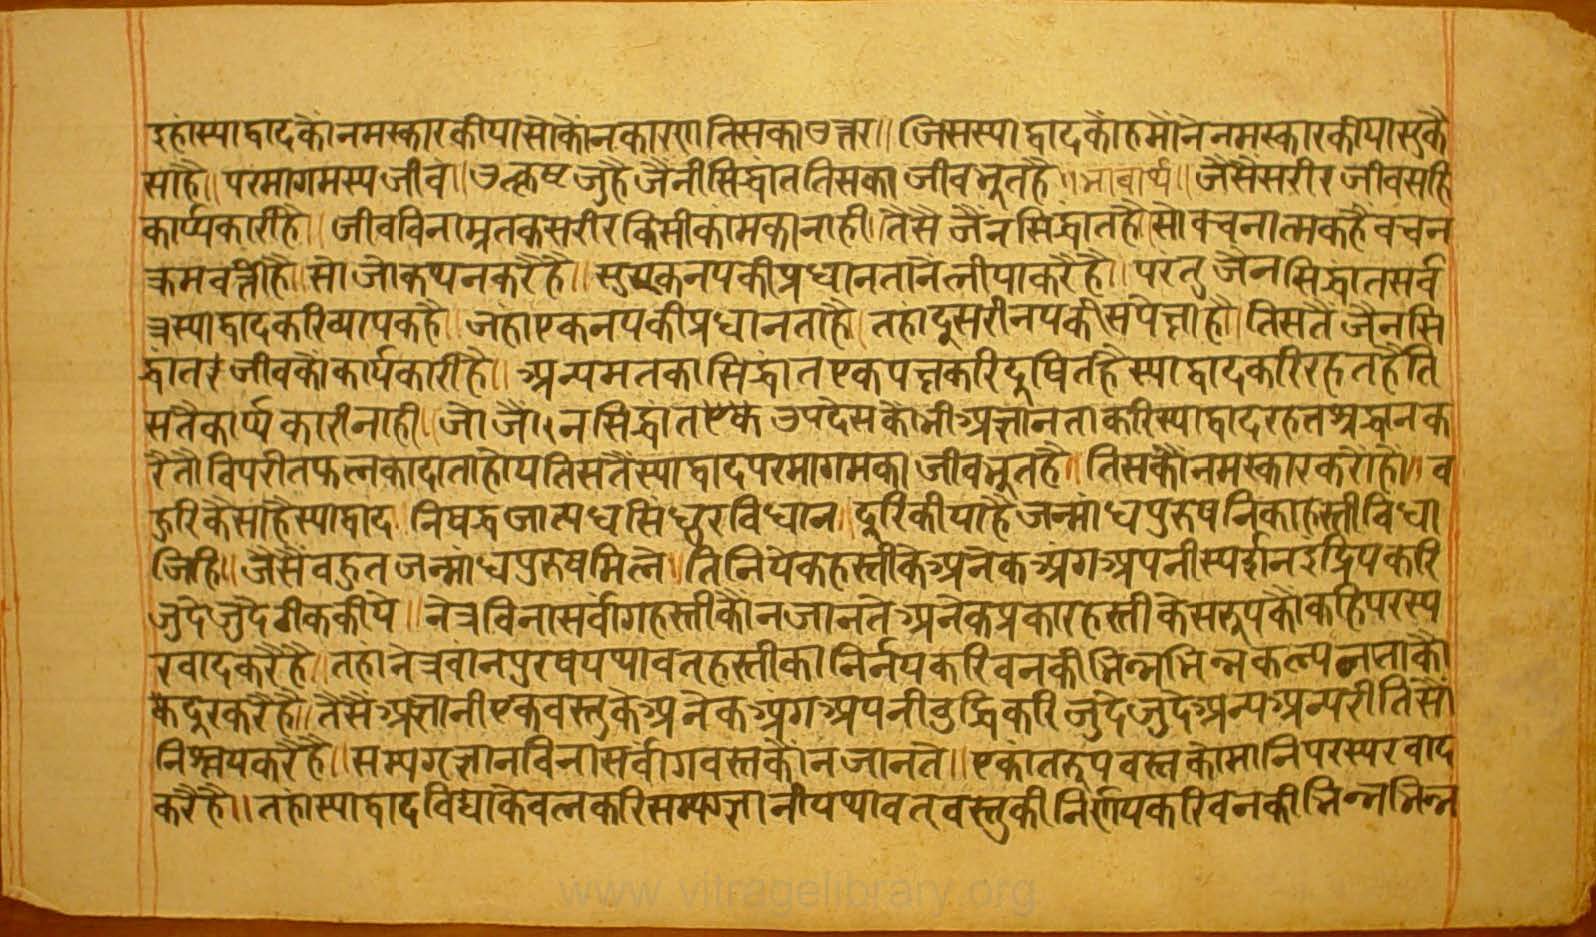 इहांस्याद्वादकौंनमस्कारकीयासोकौंनकारणतिसकाउत्तर॥जिसस्याद्वादकौंहमौंनेनमस्कारकीयासुकै
साहै॥परमागमस्यजीवं॥उत्कृष्टजुहैजैनीसिद्धांततिसकाजीवभूतहै॥भावार्थ॥जैसैंसरीरजीवसहि
कार्य्यकारीहै॥जीवविनाम्रतकसरीरकिसीकामकानाही॥तैसैजैंनसिद्धांतहै॥सोवचनात्मकहैवचन
क्रमवर्त्तीहै॥सोजोकथनकरैहै॥सुयेकनयकीप्रधानतानैलीयाकरैहै॥परंतुजैनसिद्धांतसर्व
त्रस्याद्वादकरिव्यापकहै॥जहांएकनयकीप्रधानताहै॥तहांदुसरीनयकीसंपेक्षाहै॥तिसतैंजैनसि
द्धांतजीवकौंकार्यकारीहै॥अन्यमतकासिद्धांतएकपक्षकरिदुषितहैस्याद्वादकरिरहतहैति
सतैकार्य्यकारीनाही॥जोजैनसिद्धांतएकेउपदेसकौंभीअज्ञानताकरिस्याद्वादरहतश्रद्धानक
रैतौविपरीतफलकादाताहोयतिसतैंस्याद्वादपरमागमकाजीवभूतहै॥तिसकौंनमस्कारकरौहौं॥ब
हुरिकैसाहैस्याद्वाद॥निषद्धजात्यधसिंधुरविधान॥दुरिकीयाहैजन्मांधपुरुषनिकाहस्तीविधा
जिहि॥जैसैंबहुतजन्मांधपुरुषमिले॥तिनियेकहस्तीकेअनेकअंगअपनीस्पर्शनइंद्रियकरि
जुदेजुदेठीककीये॥नेत्रविनासर्वांगहस्तीकौंनजानतेअनेकप्रकारहस्तीकेसरुपकौंकहिपरस्प
रवादकरैहै॥तहांनेत्रवांनपुरषयथावतहस्तीकानिर्नयकरिवनकीभिन्नभिन्नकल्पनाकौ
कैदुरकरैहै॥तैसैंअज्ञानीएकवस्तुकेअनेकअंगअपनीबुद्धिकरिजुदेजुदेअन्यअन्यरीतिसौं
निश्चयकरैहै॥सम्यगज्ञानविनासर्वांगवस्तकौंनजानते॥एकांतरुपवस्तकौंमानिपरस्परवाद
करैहै॥तहांस्याद्वादविद्याकेवलकरिसम्यग्ज्ञानीयथावतवस्तुकीनिर्णयकरिवनकीभिन्नभिन्न
www.vitragelibrary.org